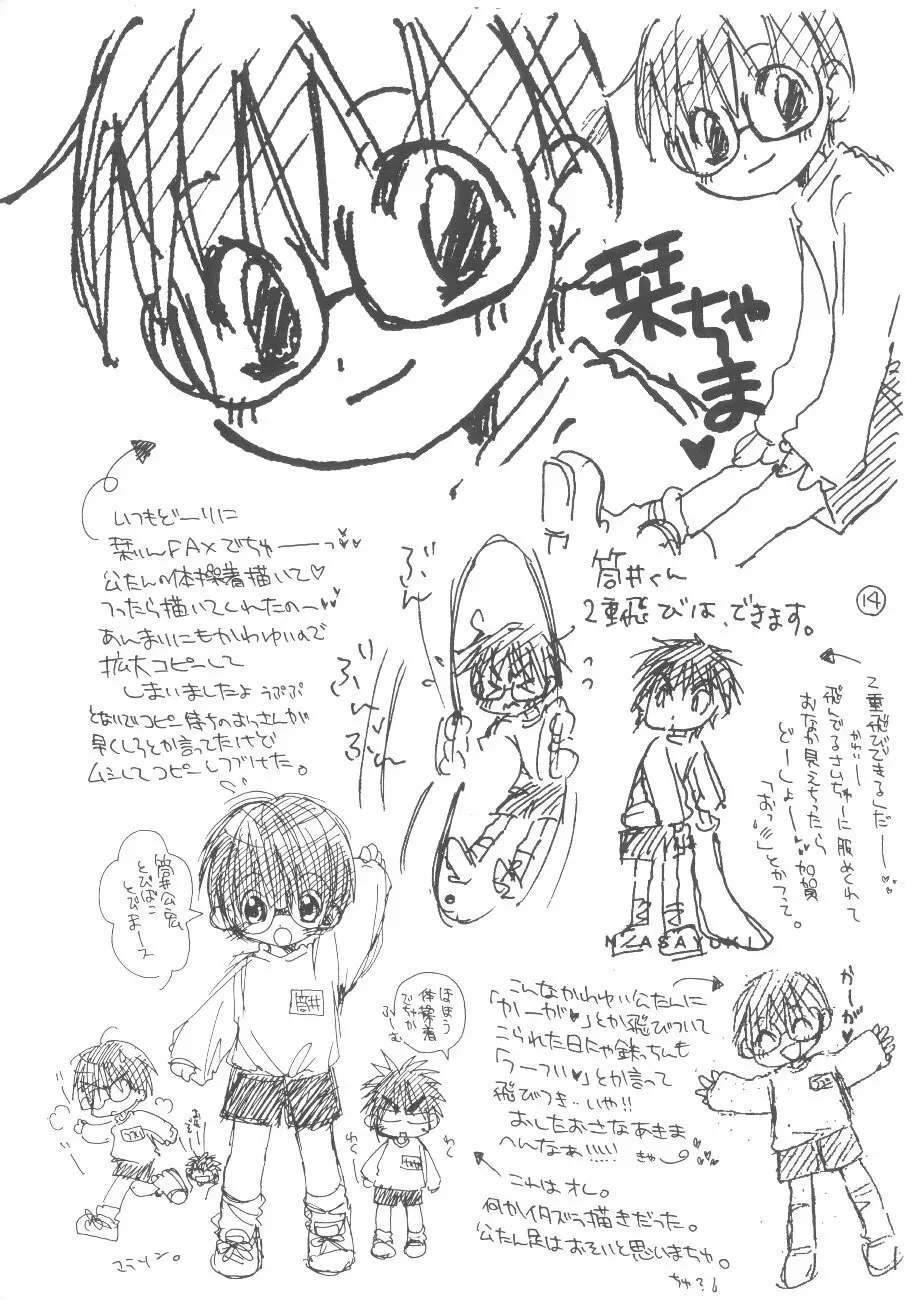 栞ちゃま♥
いつもどーりに
栞りんFAXでちゅーーっ♥♥
公たんの体操着描いて♡
つったら描いてくれたのー♥♥
あんまいにもかわゆいので
拡大コピーして
しまいましたよ うぷぷ
となりでコピー待ちのおっさんが
早くしろとか言ってたけど
ムシしてコピーしつづけた。
ぶん
ぶん
ぶん
筒井くん
2重飛びは、できます。
14
2重飛びできる」だーー♥
かわいー
飛んでるさいちゅーに服めくれて
おなか見えちったら
どーしよーー♥♥ 加賀
「おっ!!」とかつって。
MASAYUKI
筒井公宏
とびばこ
とびまース
ほほう
体操着
でちゅか
ふーむ
わく
わく
マラソン。
こんなかわゆい公たんに
「かーが♥」とか飛びついて
こられた日にゃ鉄っちんも
「つーつい♥」とか言って
飛びつき‥いや!!
おしたおさなあきま
へんなぁ!!!!! きゃー
かーが♥
これはオレ。
何かイタズラ描きだった。
公たん足はおそいと思いまちゅ。
ちゅ?